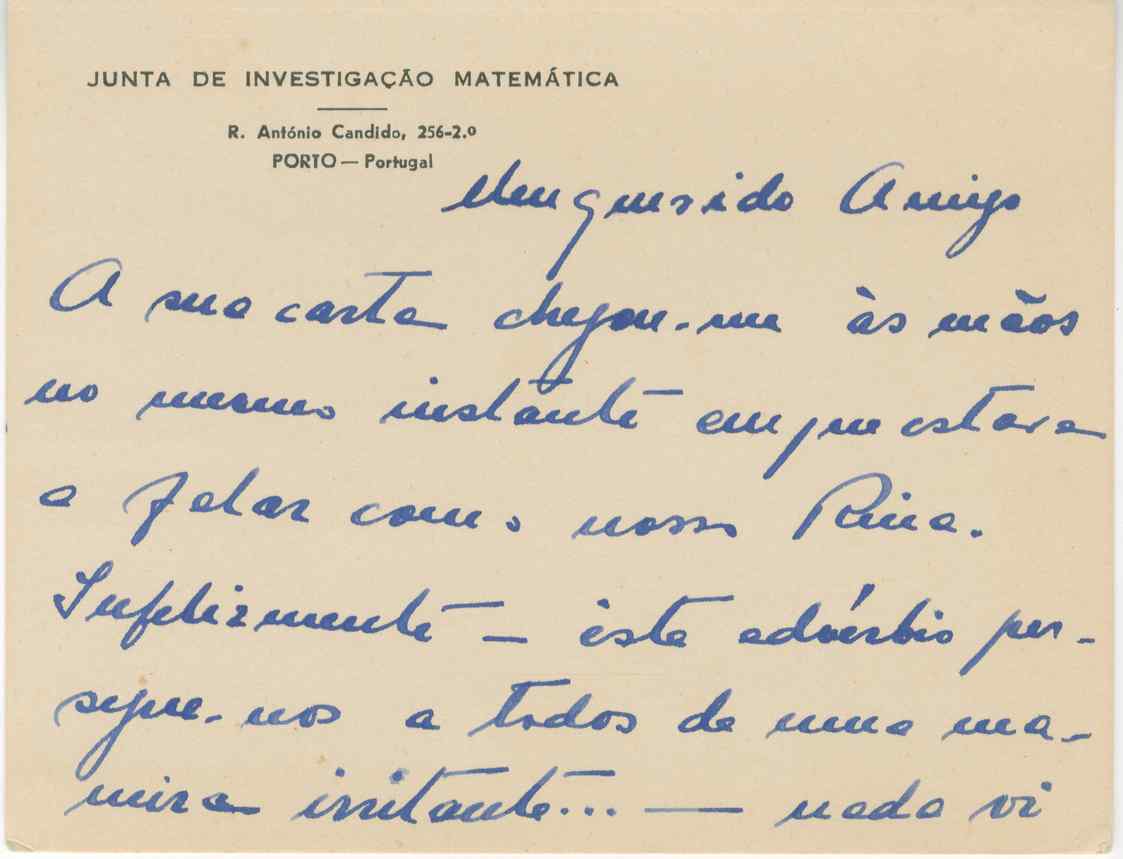 JUNTA DE INVESTIGAÇÃO MATEMÁTICA
R. António Candido, 256-2.º
PORTO — Portugal
Meu querido Amigo
A sua carta chegou-me às mãos
no mesmo instante em que estava
a falar com o nosso Rica.
Infelizmente — êste advérbio per-
segue-nos a todos de uma ma-
neira irritante... — nada vi